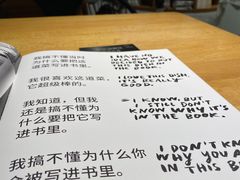 我搞不懂当时
为什么要把这
道菜写进书里。
我很喜欢这道菜，
它超级棒的。
我知道，但我
还是搞不懂为
什么要把它写
进书里。
我搞不懂为什么你
会被写进书里。
I HAVE NO
IN THE BOOK
I LOVE THIS DISH,
IT'S REALLY
GOOD.
– I KNOW, BUT I
STILL DON'T
KNOW WHY IT'S
IN THE BOOK.
I DON'T KNOW
WHY YOU A
IN THIS B